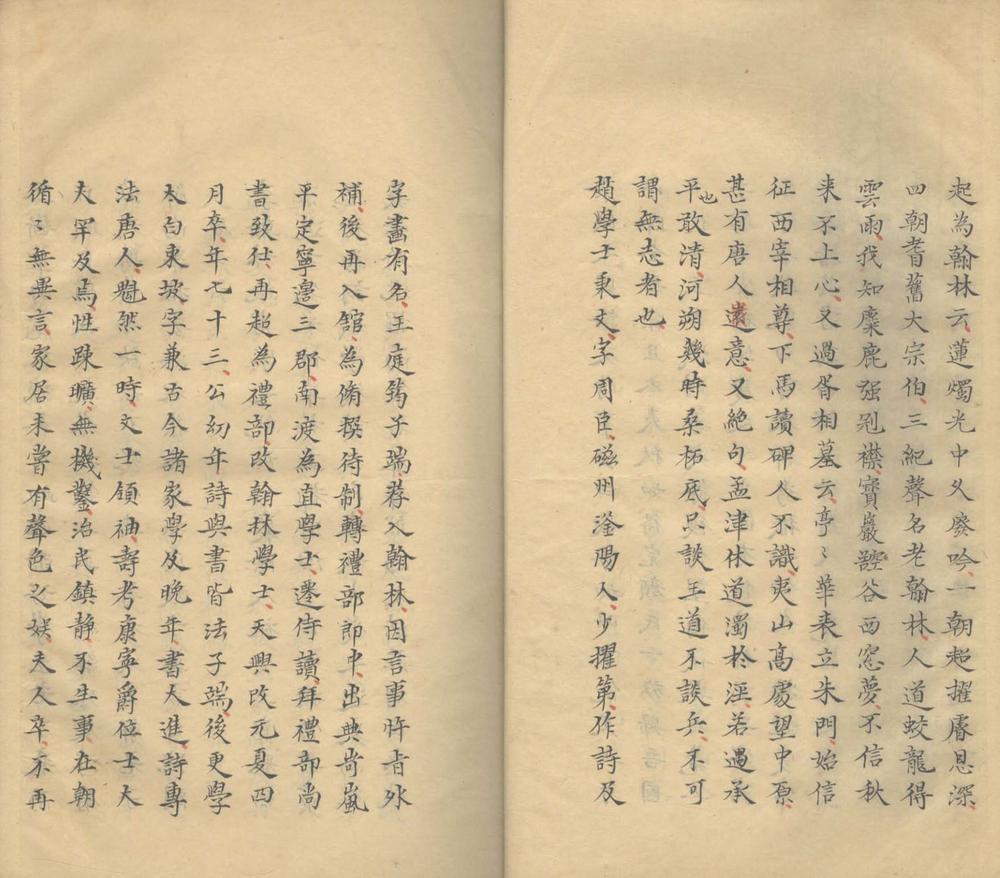 起為翰林云蓮燭光中久廢吟一朝超擢膺恩深
四朝耆舊大宗伯三紀聲名老翰林人道蛟龍得
雲雨我知麋鹿强冠襟寶巖巖谷西窓夢不信秋
来不上心又過胥相墓云亭〻華表立朱門始信
征西宰相尊下馬讀碑人不識夷山髙處望中原
甚有唐人遺意又絶句孟津休道濁扵涇若遇承
平也敢清河朔幾時桑柘底只談王道不談兵不可
謂無志者也
趙學士秉文字周臣磁州滏陽人少擢第作詩及
字畫有名王庭筠子端荐入翰林因言事忤㫖外
補後再入館為脩撰待制轉禮部郎中出典岢嵐
平定寧邉三郡南渡為直學士遷侍讀拜禮部尚
書致仕再起為禮部改翰林學士天興改元夏四
月卒年七十三公幼年詩與書皆法子端後更學
太白東坡字兼古今諸家學及晚年書大進詩專
法唐人魁然一時文士領袖壽考康寧爵位士大
夫罕及焉性踈曠無機鑿治民鎮静不生事在朝
循〻無異言家居未嘗有聲色之娱夫人卒不再